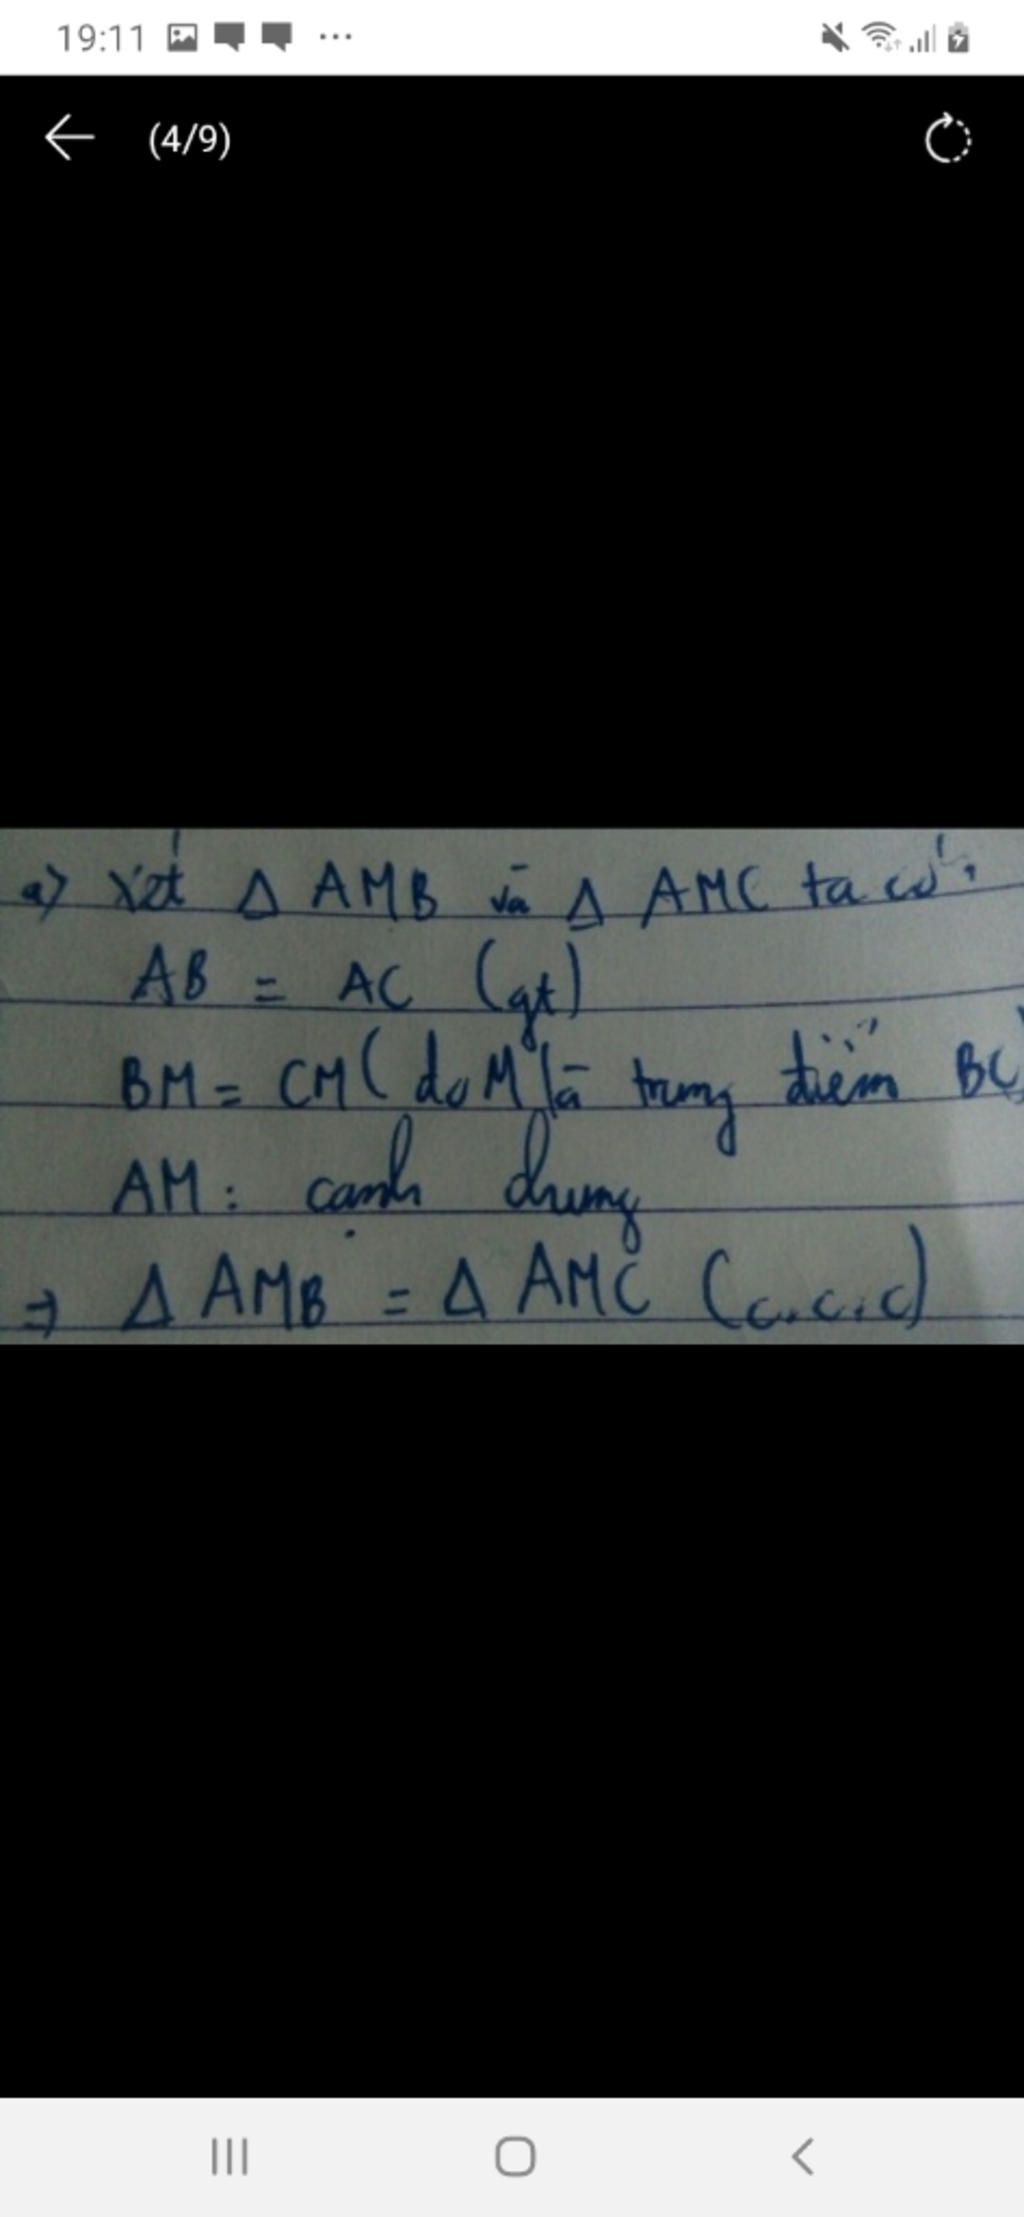 19:11
(4/9)
a) Xét Δ AMB và Δ AMC ta có:
AB = AC (gt)
BM = CM (do M là trung điểm BC)
AM: cạnh chung
=> Δ AMB = Δ AMC (c.c.c)